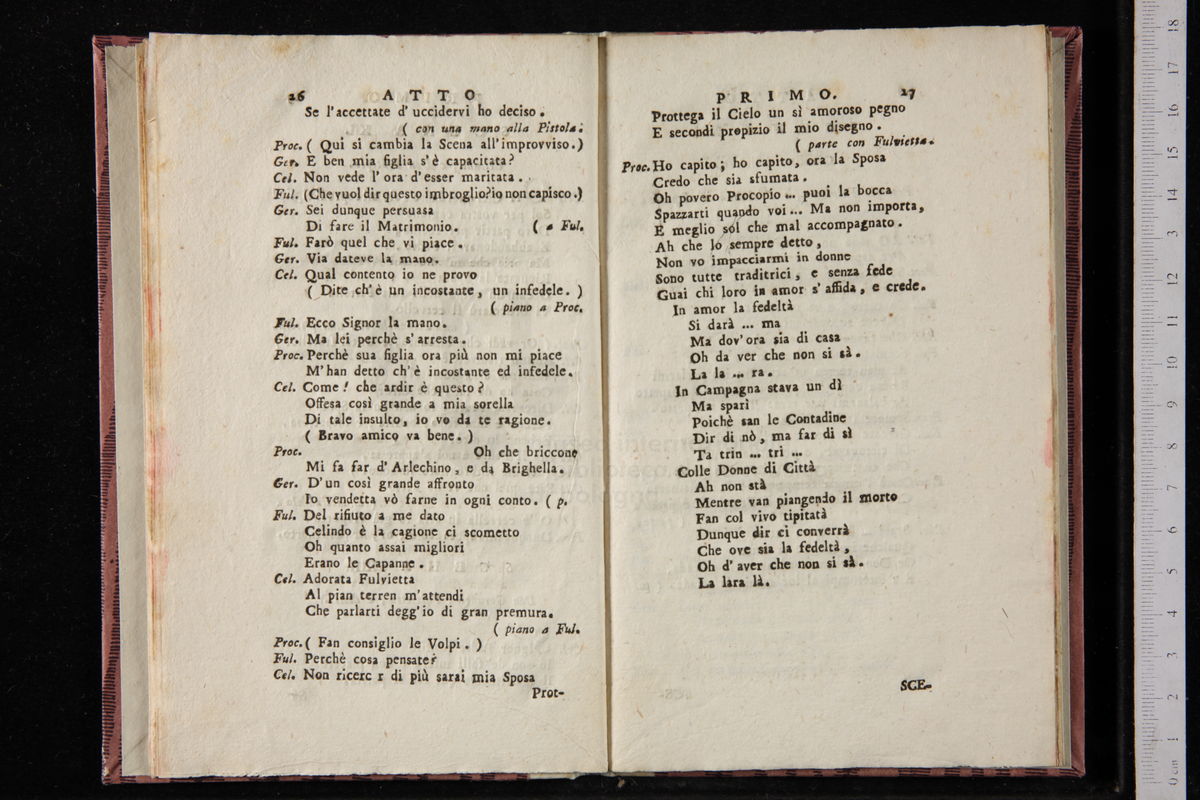 26 ATTO
Se l'accettate d'uccidervi ho deciso.
( con una mano alla Pistola.
Proc. ( Qui si cambia la Scena all'improvviso.)
Ger. E ben mia figlia s'è capacitata?
Cel. Non vede l'ora d'esser maritata.
Ful. (Che vuol dir questo imbroglio? io non capisco.)
Ger. Sei dunque persuasa
Di fare il Matrimonio. ( a Ful.
Ful. Farò quel che vi piace.
Ger. Via dateve la mano.
Cel. Qual contento io ne provo
( Dite ch'è un incostante, un infedele. )
( piano a Proc.
Ful. Ecco Signor la mano.
Ger. Ma lei perchè s'arresta.
Proc. Perchè sua figlia ora più non mi piace
M'han detto ch'è incostante ed infedele.
Cel. Come! che ardir è questo?
Offesa così grande a mia sorella
Di tale insulto, io vo da te ragione.
( Bravo amico va bene. )
Proc. Oh che briccone
Mi fa far d'Arlechino, e da Brighella.
Ger. D'un così grande affronto
Io vendetta vò farne in ogni conto. ( p.
Ful. Del rifiuto a me dato
Celindo è la cagione ci scometto
Oh quanto assai migliori
Erano le Capanne.
Cel. Adorata Fulvietta
Al pian terren m'attendi
Che parlarti degg'io di gran premura.
( piano a Ful.
Proc. ( Fan consiglio le Volpi. )
Ful. Perchè cosa pensate?
Cel. Non ricerc r di più sarai mia Sposa
Prot-
PRIMO. 27
Prottega il Cielo un sì amoroso pegno
E secondi propizio il mio disegno.
( parte con Fulvietta.
Proc. Ho capito; ho capito, ora la Sposa
Credo che sia sfumata.
Oh povero Procopio ... puoi la bocca
Spazzarti quando voi ... Ma non importa,
E meglio sol che mal accompagnato.
Ah che lo sempre detto,
Non vo impacciarmi in donne
Sono tutte traditrici, e senza fede
Guai chi loro in amor s'affida, e crede.
In amor la fedeltà
Si darà ... ma
Ma dov'ora sia di casa
Oh da ver che non si sà.
La la ... ra.
In Campagna stava un dì
Ma sparì
Poichè san le Contadine
Dir di nò, ma far di sì
Ta trin ... tri ...
Colle Donne di Città
Ah non stà
Mentre van piangendo il morto
Fan col vivo tipitatà
Dunque dir ci converrà
Che ove sia la fedeltà,
Oh d'aver che non si sà.
La lara là.
SCE-